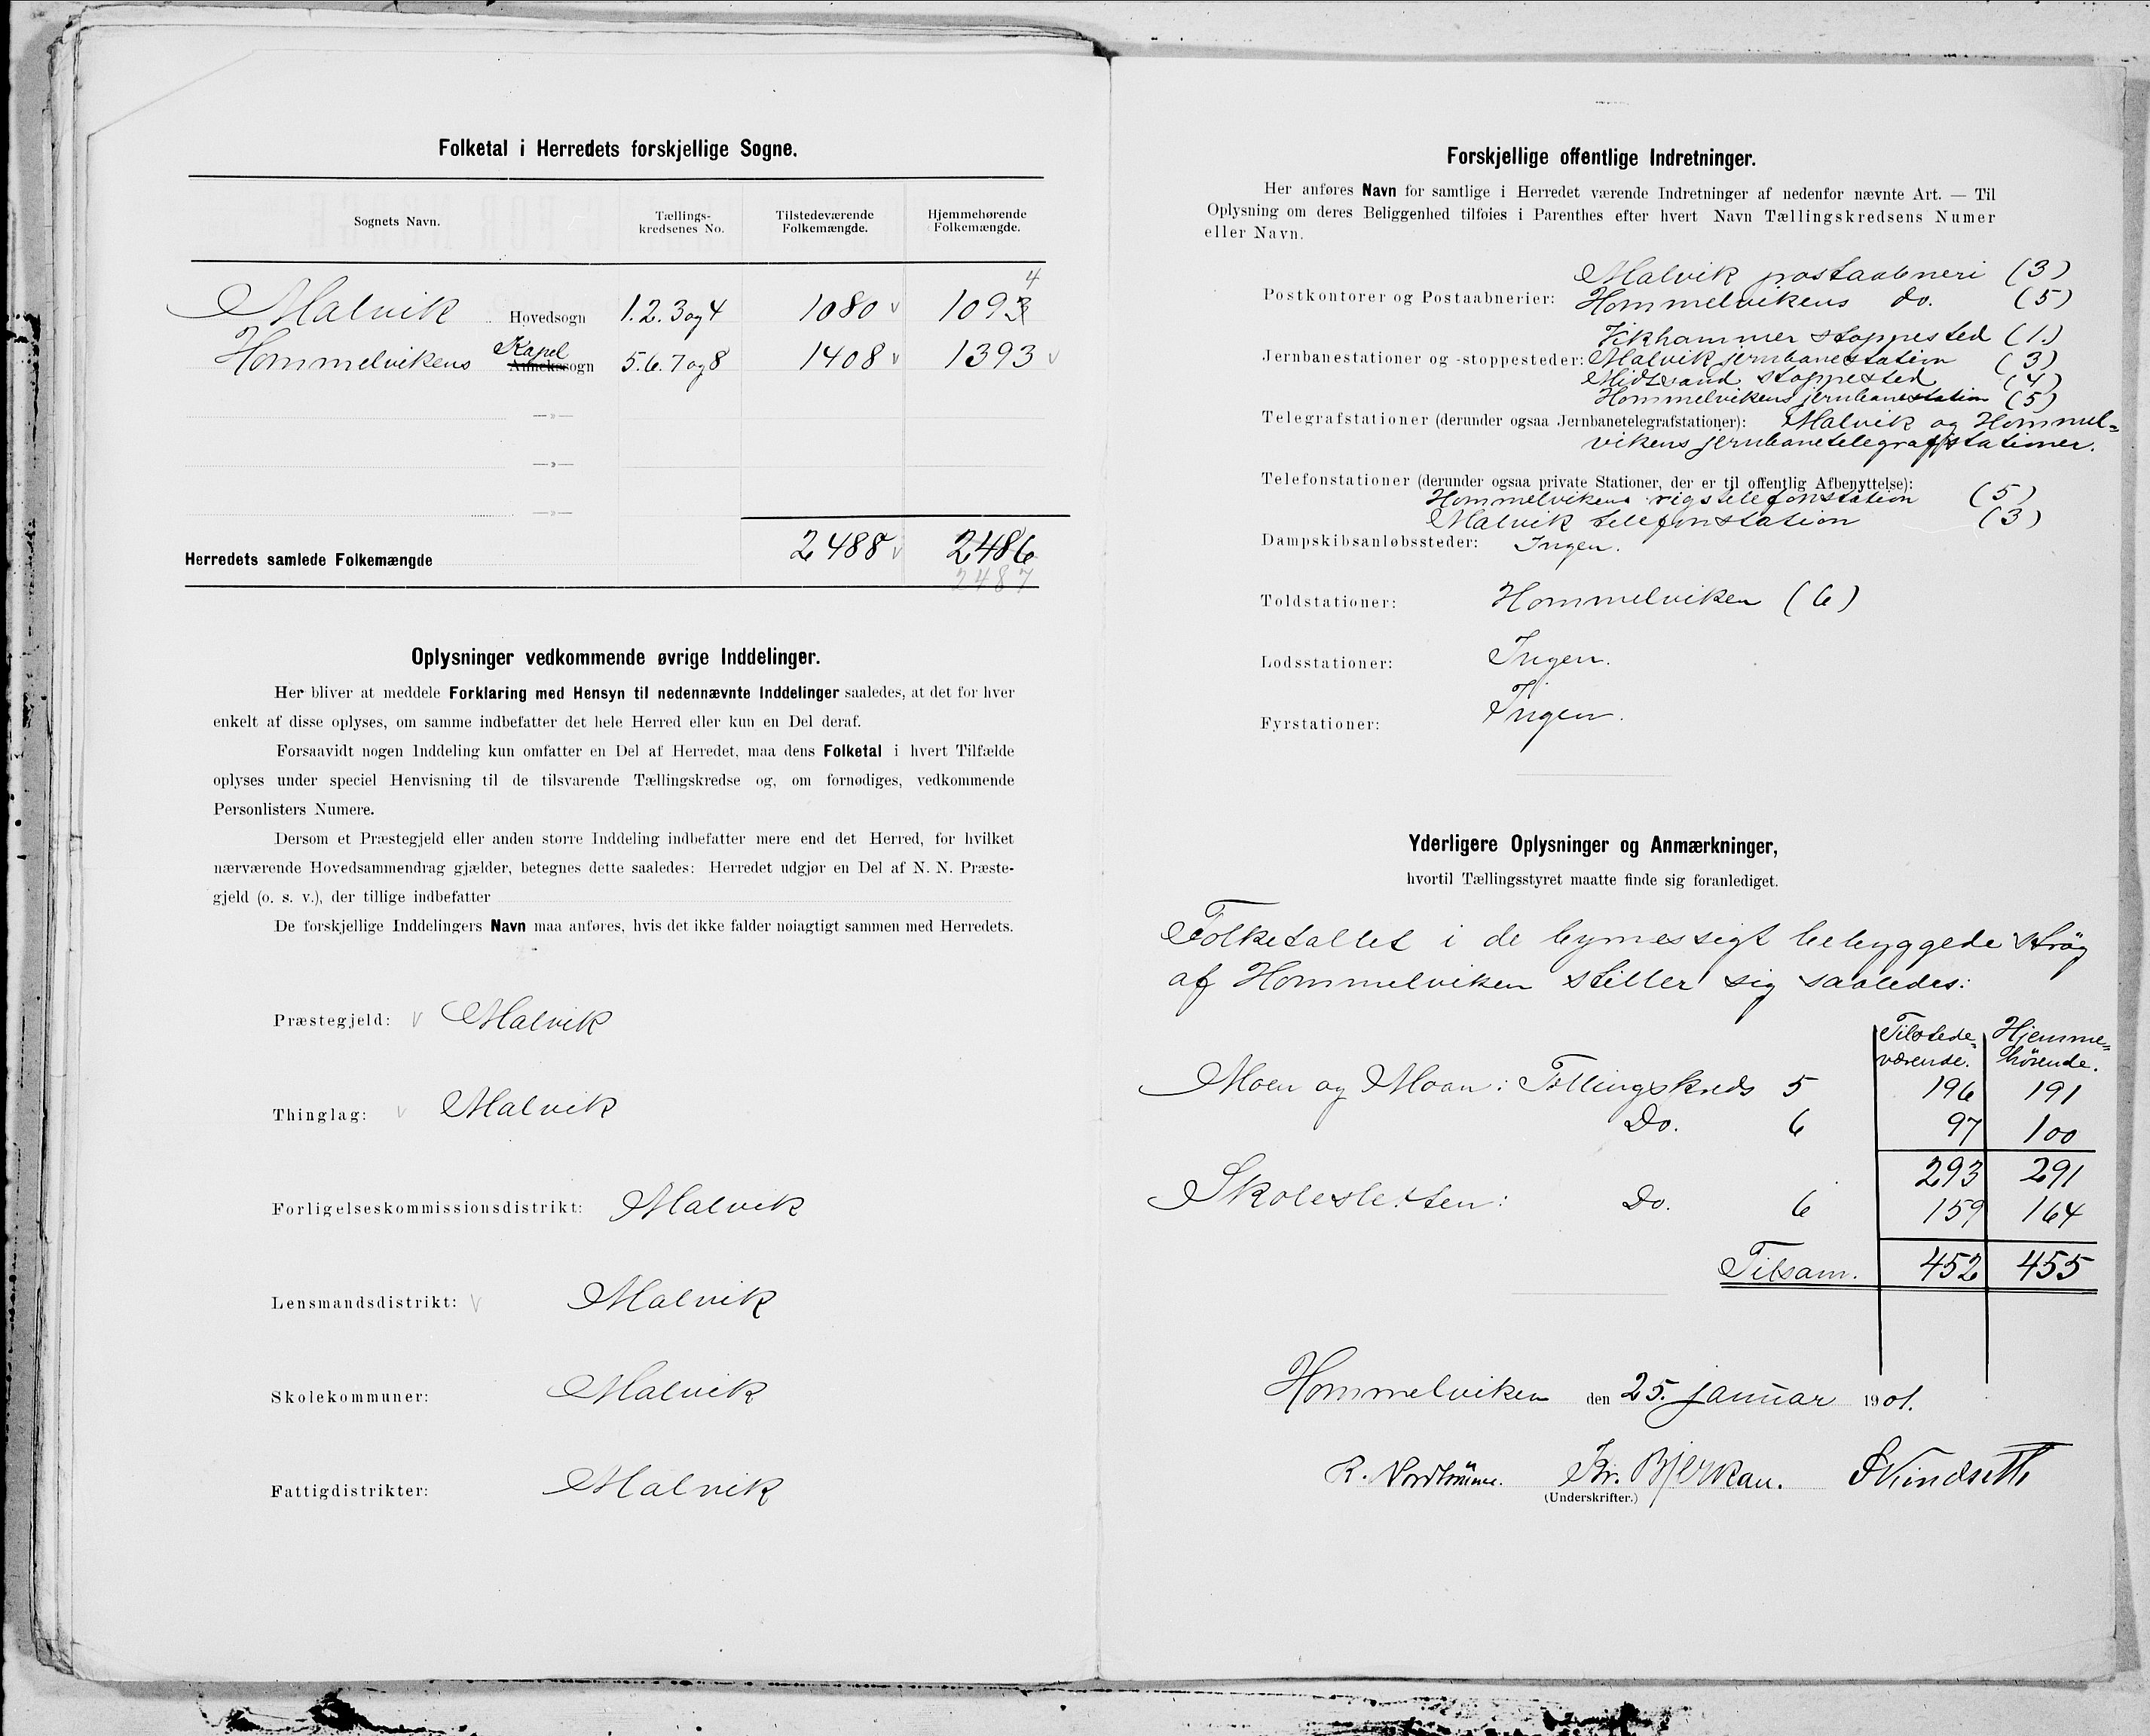 Folketal i Herredets forskjellige Sogne.
Sognets Navn. Tællings-kredsenes No. Tilstedeværende Folkemængde. Hjemmehørende Folkemængde.
4
Malvik Hovedsogn 1.2.3og4 1080 v 1093
Kapel
Hommelvikens Annekssogn 5.6.7og8 1408 v 1393 v
—»—
—»—
—»—
Herredets samlede Folkemængde 2488 v 2486
2487
Oplysninger vedkommende øvrige Inddelinger.
Her bliver at meddele Forklaring med Hensyn til nedennævnte Inddelinger saaledes, at det for hver
enkelt af disse oplyses, om samme indbefatter det hele Herred eller kun en Del deraf.
Forsaavidt nogen Inddeling kun omfatter en Del af Herredet, maa dens Folketal i hvert Tilfælde
oplyses under speciel Henvisning til de tilsvarende Tællingskredse og, om fornødiges, vedkommende
Personlisters Numere.
Dersom et Præstegjeld eller anden større Inddeling indbefatter mere end det Herred, for hvilket
nærværende Hovedsammendrag gjælder, betegnes dette saaledes: Herredet udgjør en Del af N. N. Præste-
gjeld (o. s. v.), der tillige indbefatter
De forskjellige Inddelingers Navn maa anføres, hvis det ikke falder nøiagtigt sammen med Herredets.
Præstegjeld: v Malvik
Thinglag: v Malvik
Forligelseskommissionsdistrikt: Malvik
Lensmandsdistrikt: v Malvik
Skolekommuner: Malvik
Fattigdistrikter: Malvik
Forskjellige offentlige Indretninger.
Her anføres Navn for samtlige i Herredet værende Indretninger af nedenfor nævnte Art. — Til
Oplysning om deres Beliggenhed tilføies i Parenthes efter hvert Navn Tællingskredsens Numer
eller Navn.
Malvik postaabneri (3)
Postkontorer og Postaabnerier: Hommelvikens do. (5)
Vikhammer stoppested (1.)
Jernbanestationer og -stoppesteder: Malvik jernbanestation (3)
Midtsand stoppested (4)
Hommelvikens jernbanestation (5)
Telegrafstationer (derunder ogsaa Jernbanetelegrafstationer): Malvik og Hommel=
vikens jernbanetelegrafstationer.
Telefonstationer (derunder ogsaa private Stationer, der er til offentlig Afbenyttelse):
Hommelvikens rigstelefonstation (5)
Malvik telefonstation (3)
Dampskibsanløbssteder: Ingen.
Toldstationer: Hommelviken (6)
Lodsstationer: Ingen.
Fyrstationer: Ingen.
Yderligere Oplysninger og Anmærkninger,
hvortil Tællingsstyret maatte finde sig foranlediget.
Folketallet i de bymessigt bebyggede strøg
af Hommelviken stiller sig saaledes:
Tilstede= Hjemme=
værende. hørende.
Moen og Moan: Tællingskreds 5 196 191
Do. 6 97 100
293 291
Skolesletten: Do. 6 159 164
Tilsam. 452 455
Hommelviken den 25. januar 1901.
Kr. Bjerkan.
(Underskrifter.)